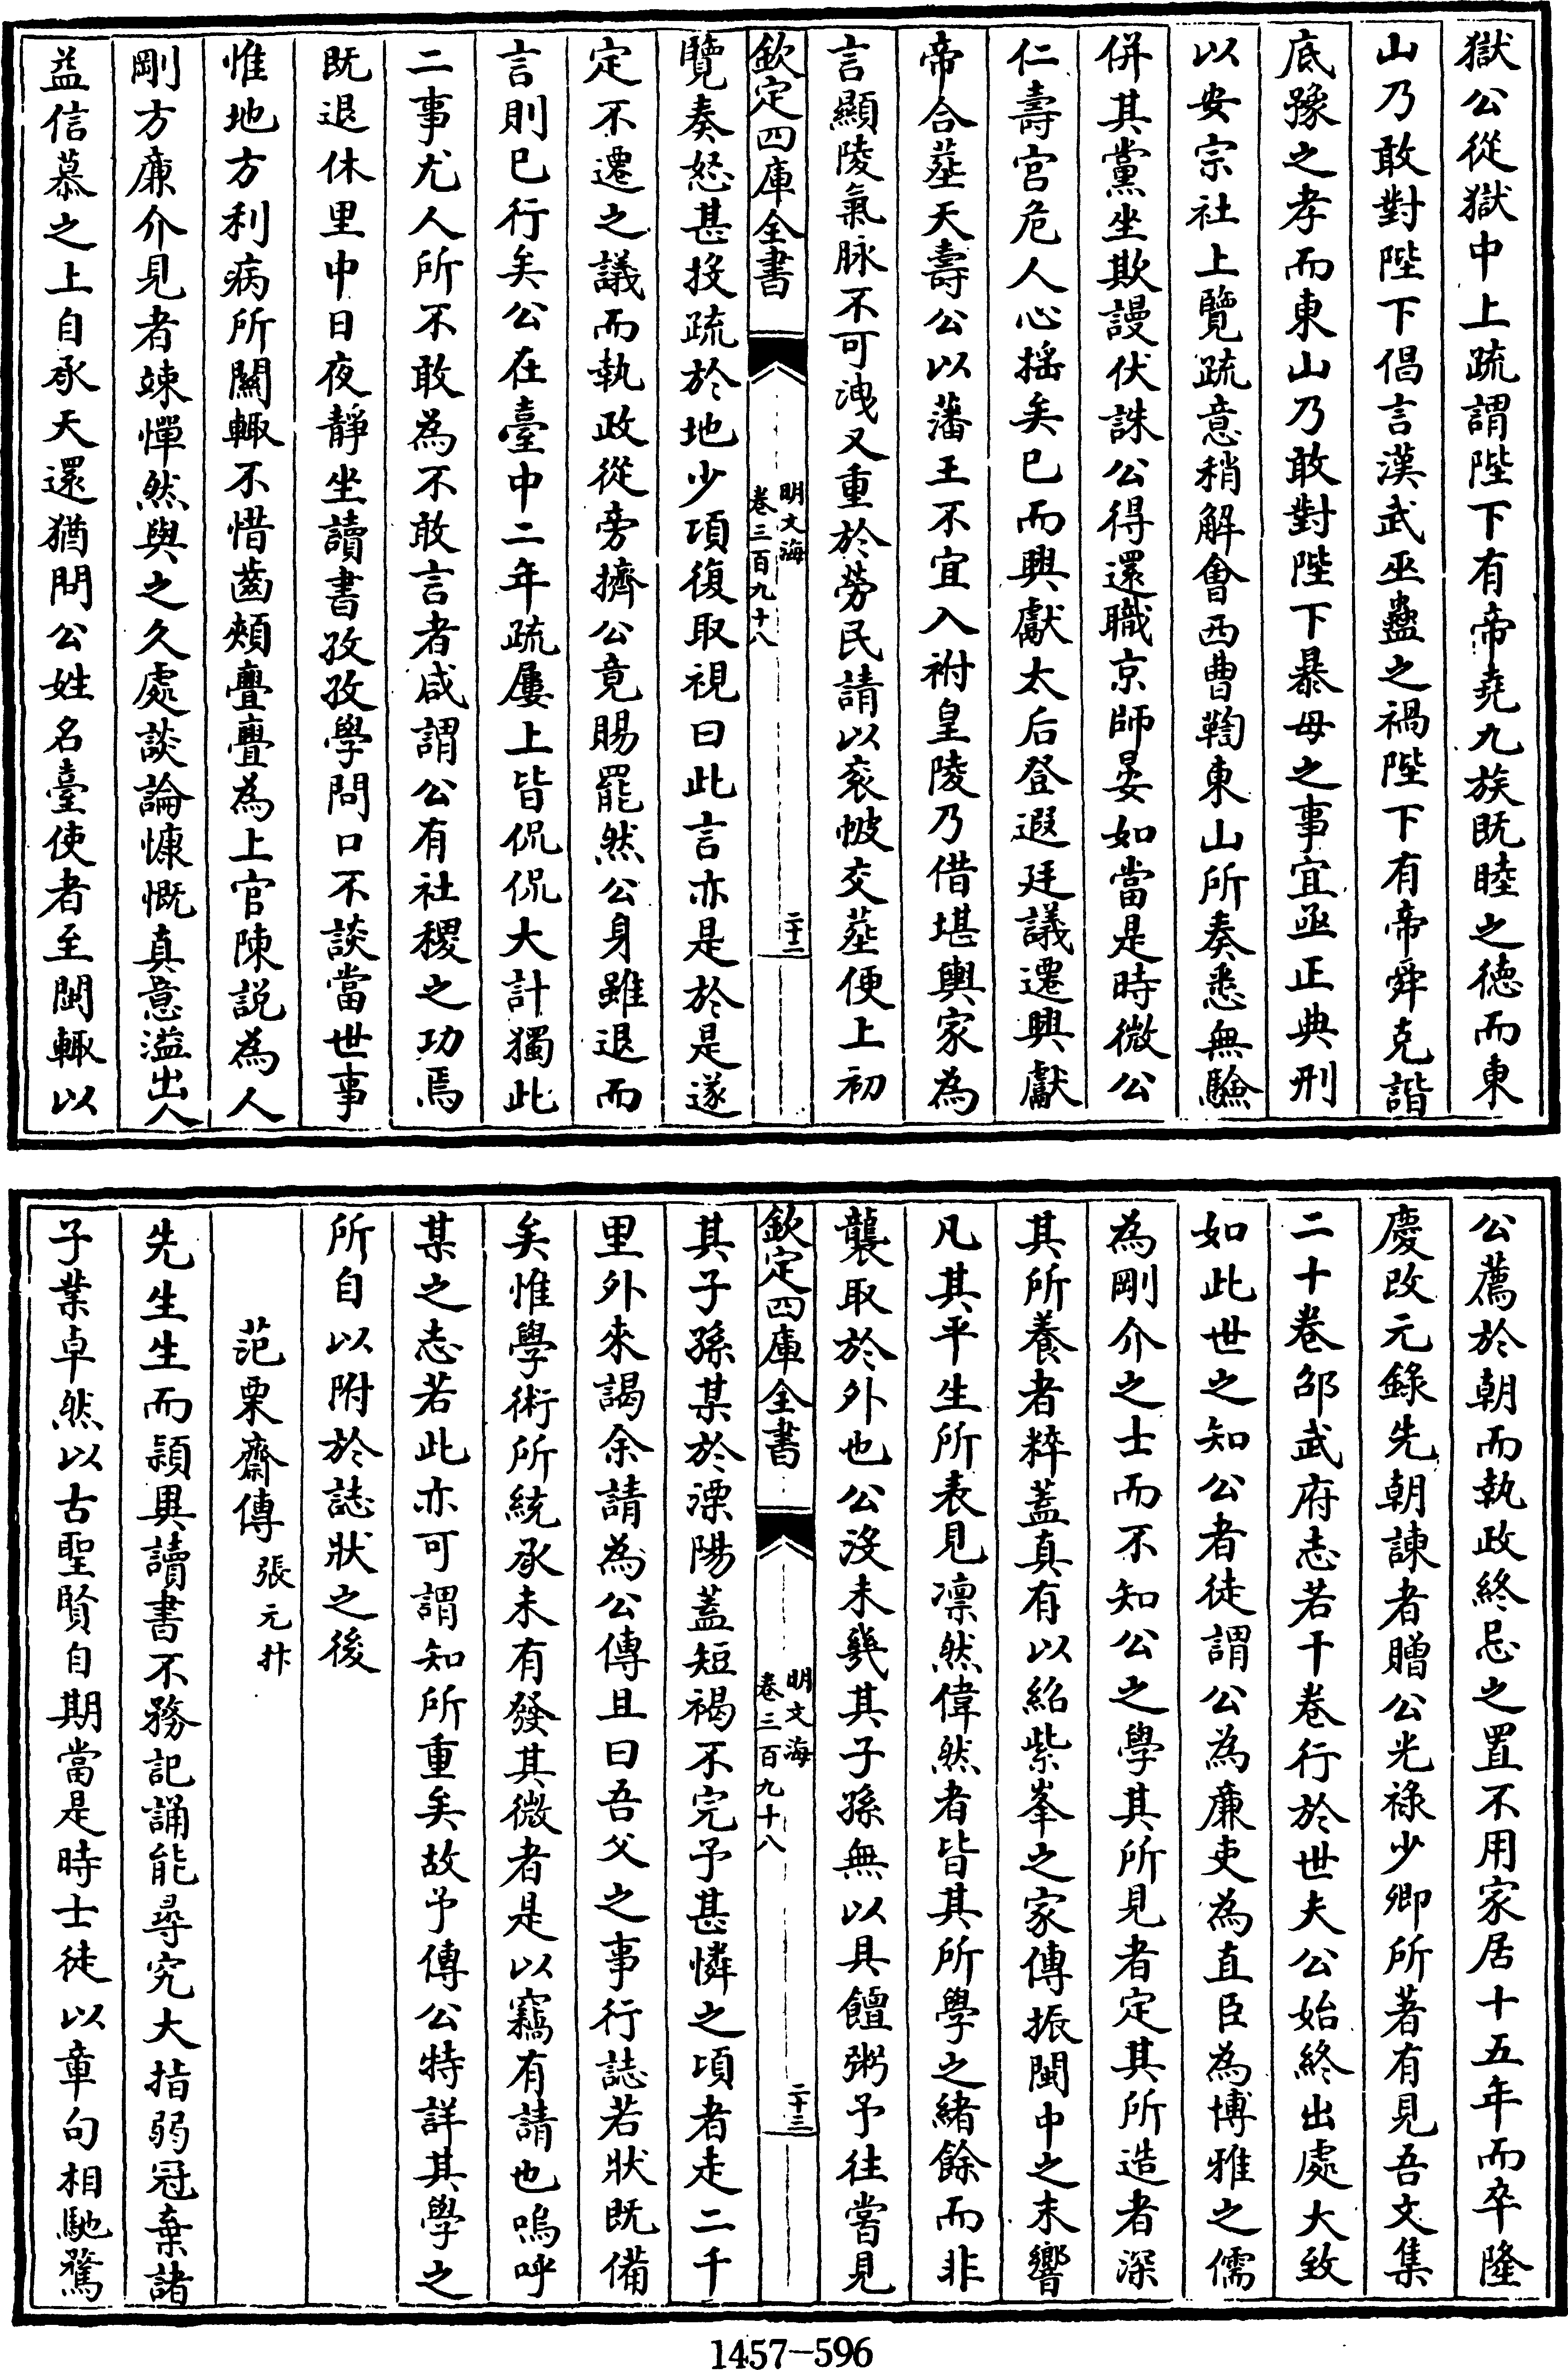 獄公從獄中上疏謂陛下有帝堯九族既睦之徳而東
山乃敢對陛下倡言漢武巫蠱之禍陛下有帝舜克諧
底豫之孝而東山乃敢對陛下暴母之事宜亟正典刑
以安宗社上覽疏意稍解㑹西曹鞫東山所奏悉無驗
併其黨坐欺謾伏誅公得還職京師晏如當是時微公
仁壽宫危人心揺矣已而興獻太后登遐廷議遷興獻
帝合塟天壽公以藩王不宜入祔皇陵乃借堪輿家為
言顯陵氣脉不可洩又重於勞民請以衮帔交塟便上初
欽定四庫全書
明文海
卷三百九十八
二十二
覽奏怒甚投疏於地少頃復取視曰此言亦是於是遂
定不遷之議而執政從旁擠公竟賜罷然公身雖退而
言則已行矣公在臺中二年疏屢上皆侃侃大計獨此
二事尤人所不敢為不敢言者咸謂公有社稷之功焉
既退休里中日夜靜坐讀書孜孜學問口不談當世事
惟地方利病所闗輒不惜齒頰亹亹為上官陳説為人
剛方亷介見者竦憚然與之久處談論慷慨真意溢出人
益信慕之上自承天還猶問公姓名臺使者至閩輒以
公薦於朝而執政終忌之置不用家居十五年而卒隆
慶改元錄先朝諫者贈公光祿少卿所著有見吾文集
二十卷邵武府志若干卷行於世夫公始終出處大致
如此世之知公者徒謂公為亷吏為直臣為博雅之儒
為剛介之士而不知公之學其所見者定其所造者深
其所養者粹蓋真有以紹紫峯之家傳振閩中之末響
凡其平生所表見凛然偉然者皆其所學之緒餘而非
襲取於外也公沒未㡬其子孫無以具饘粥予往嘗見
欽定四庫全書
明文海
卷三百九十八
二十三
其子孫某於溧陽蓋短褐不完予甚憐之頃者走二千
里外來謁余請為公傳且曰吾父之事行誌若狀既備
矣惟學術所統承未有發其微者是以竊有請也嗚呼
某之志若此亦可謂知所重矣故予傳公特詳其學之
所自以附於誌狀之後
范栗齋傳張元忭
先生生而頴異讀書不務記誦能尋究大指弱冠棄諸
子業卓然以古聖賢自期當是時士徒以章句相馳騖
1457-596